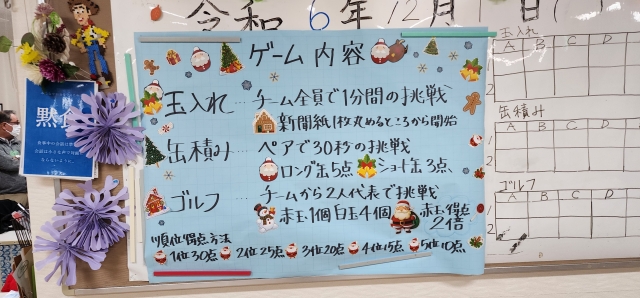 令和 6年 12月
ゲーム内容
玉入れ … チーム全員で1分間の挑戦
新聞紙1枚丸めるところから開始
缶積み … ペアで30秒の挑戦
ロング缶5点 ショート缶3点、
ゴルフ … チームから2人代表で挑戦
赤玉1個 白玉4個 赤玉得点2倍
順位得点方法
1位30点 2位25点 3位20点 4位15点 5位10点
玉入れ
A B C D
1
2
缶積み
A B C D
1
2
ゴルフ
A B C D
1
2